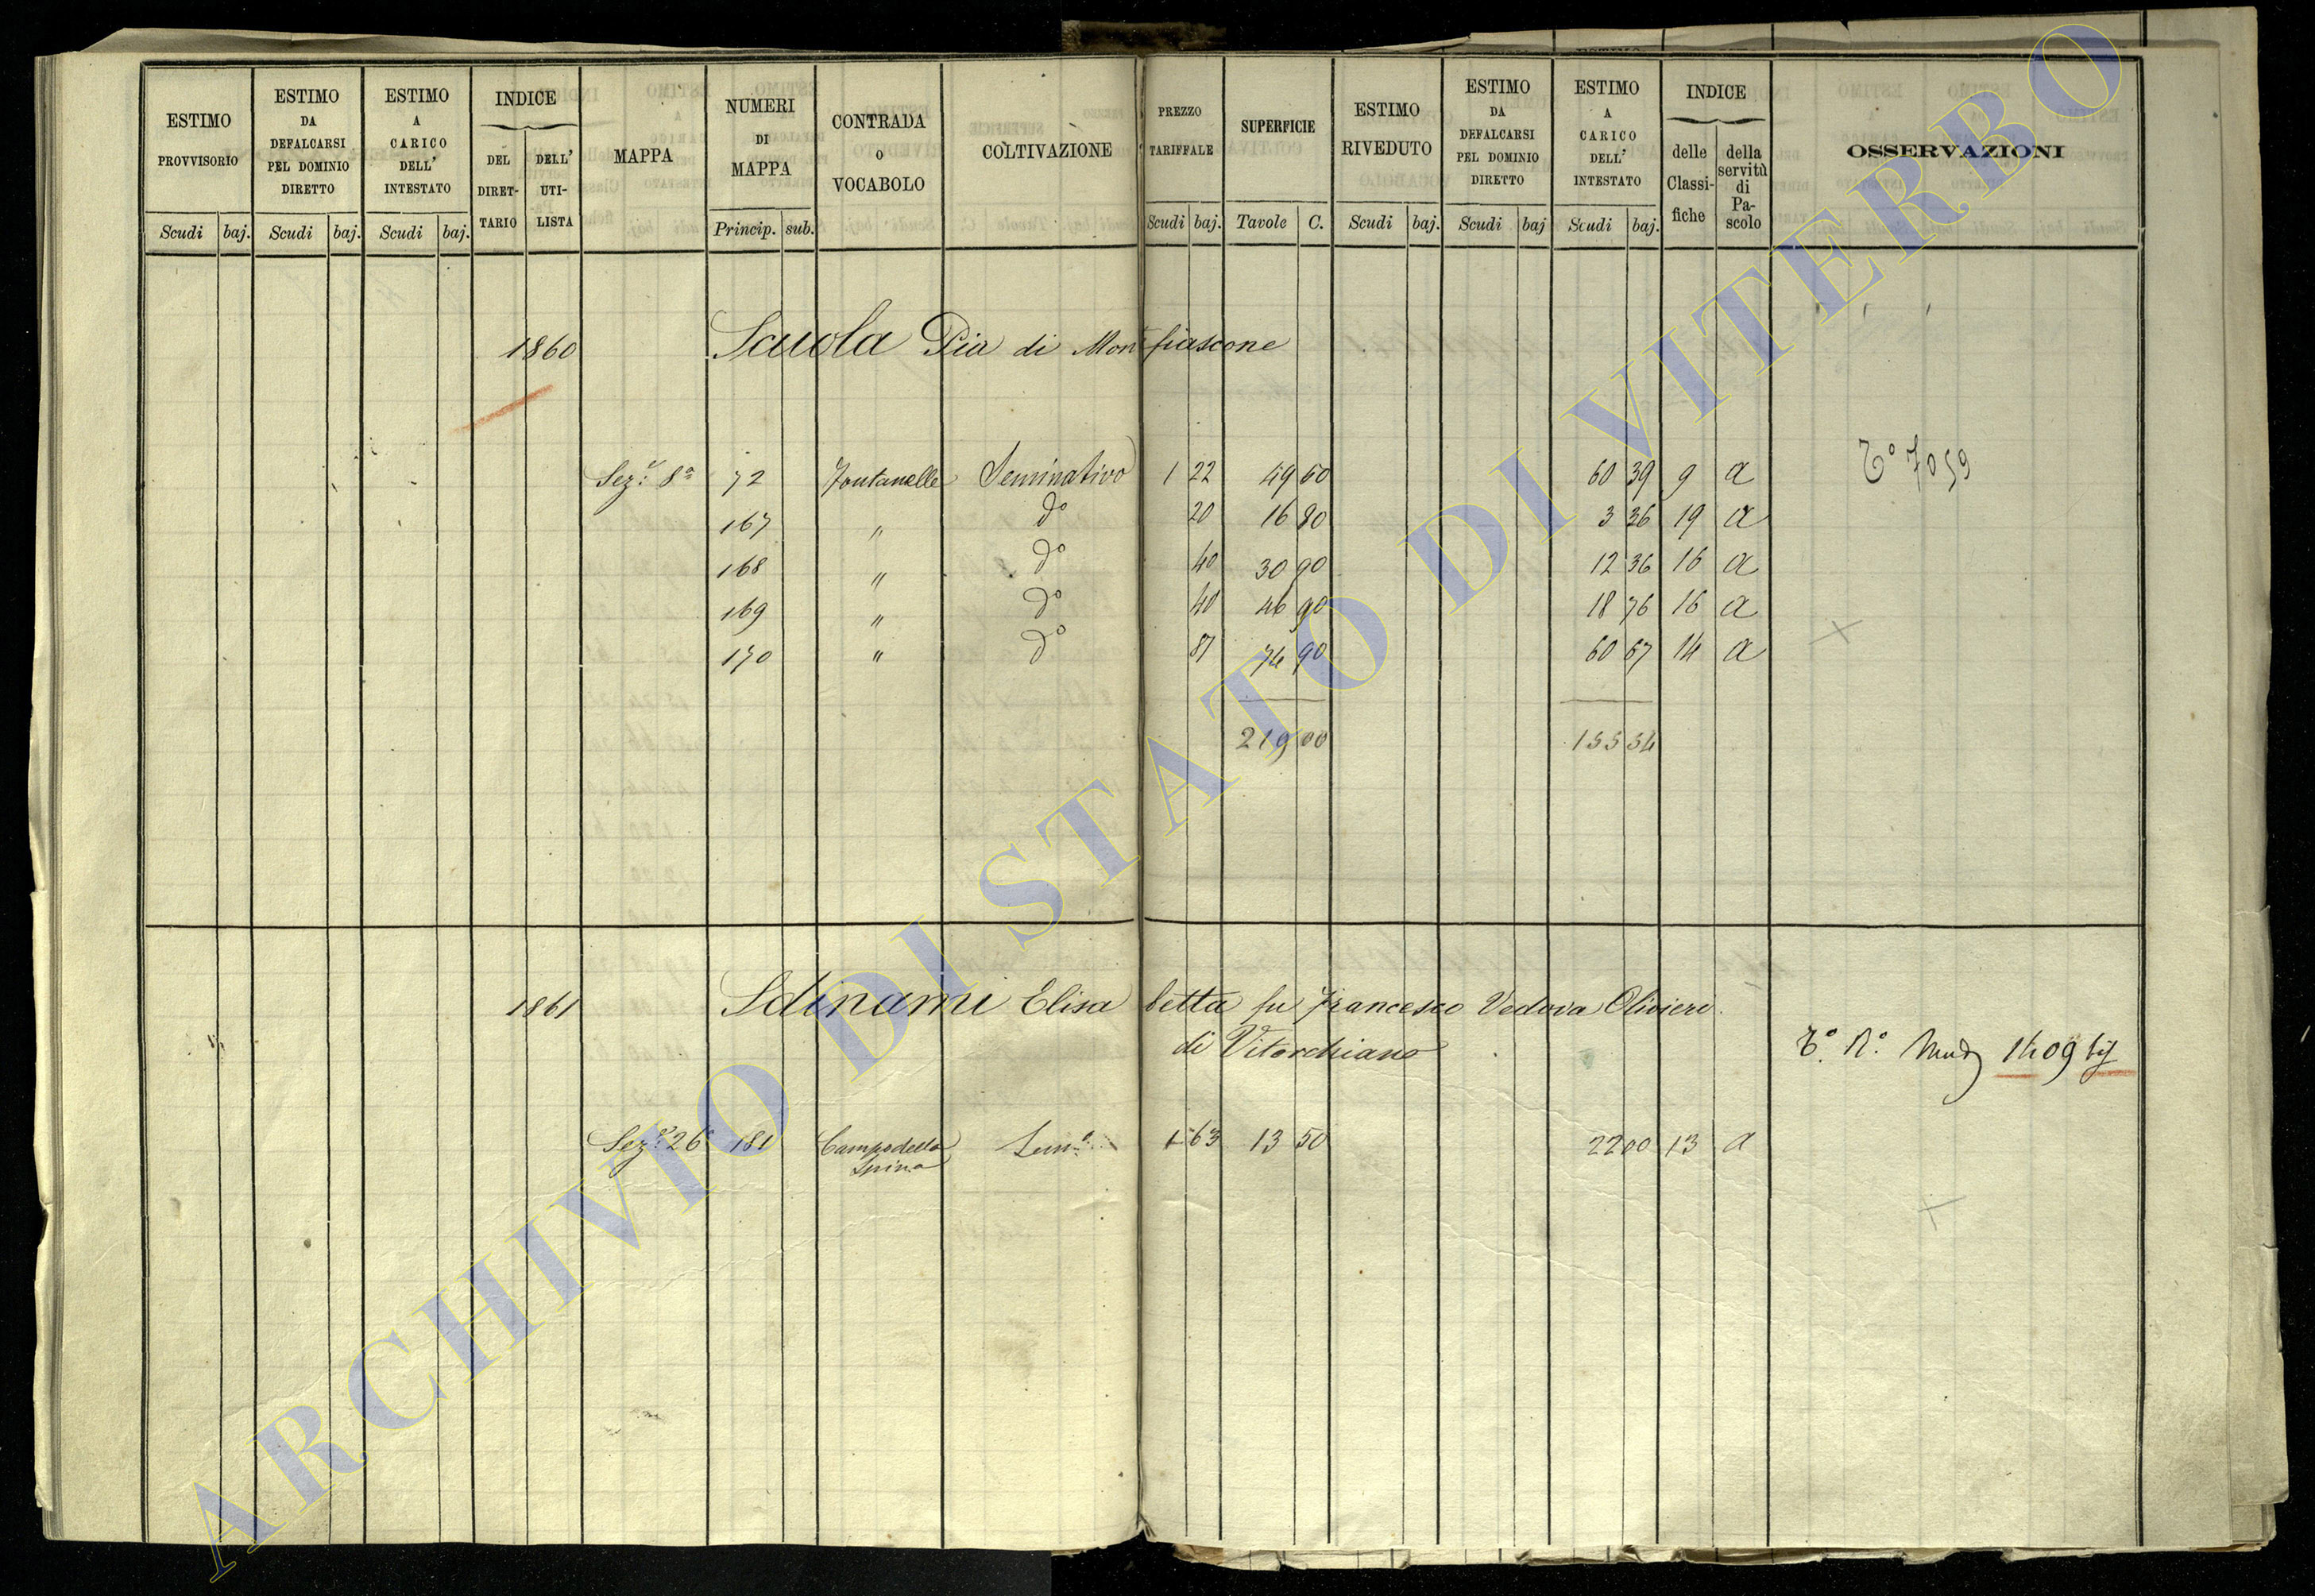 ESTIMO PROVVISORIO
Scudi baj.
ESTIMO DA DEFALCARSI PEL DOMINIO DIRETTO
Scudi baj.
ESTIMO A CARICO DELL' INTESTATO
Scudi baj.
INDICE
DEL DIRET-TARIO
DELL' UTI-LISTA
MAPPA
NUMERI DI MAPPA
Princip. sub.
CONTRADA O VOCABOLO
COLTIVAZIONE
PREZZO TARIFFALE
Scudi baj.
SUPERFICIE
Tavole C.
ESTIMO RIVEDUTO
Scudi baj.
ESTIMO DA DEFALCARSI PEL DOMINIO DIRETTO
Scudi baj
ESTIMO A CARICO DELL' INTESTATO
Scudi baj.
INDICE
delle Classi-fiche
della servitù di Pa-scolo
OSSERVAZIONI
1860 Scuola Pia di Montefiascone
Sez.e 8a 72 Fontanelle Seminativo 1 22 49 50 60 39 9 a To 7059
167 " do 20 16 80 3 36 19 a
168 " do 40 30 90 12 36 16 a
169 " do 40 46 90 18 76 16 a
170 " do 81 74 90 60 67 14 a
219 00 155 54
1861 Sdinami Elisabetta fu Francesco Vedova Olivieri
di Vitorchiano
To. No. 1409
Sez.e 26 181 Campo della Spina Sem.o 1 63 13 50 22 00 13 a
ARCHIVIO DI STATO DI VITERBO